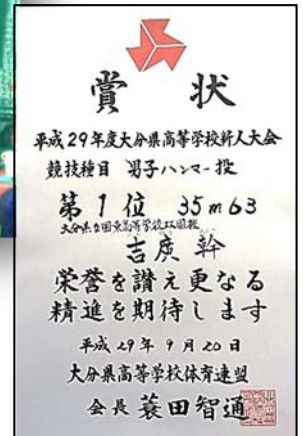 賞状
平成29年度大分県高等学校新人大会
競技種目 男子ハンマー投
第1位 35m63
大分県立国東高等学校双国校
吉廣 幹
栄誉を讃え更なる
精進を期待します
平成29年9月20日
大分県高等学校体育連盟
会長 蓑田智通